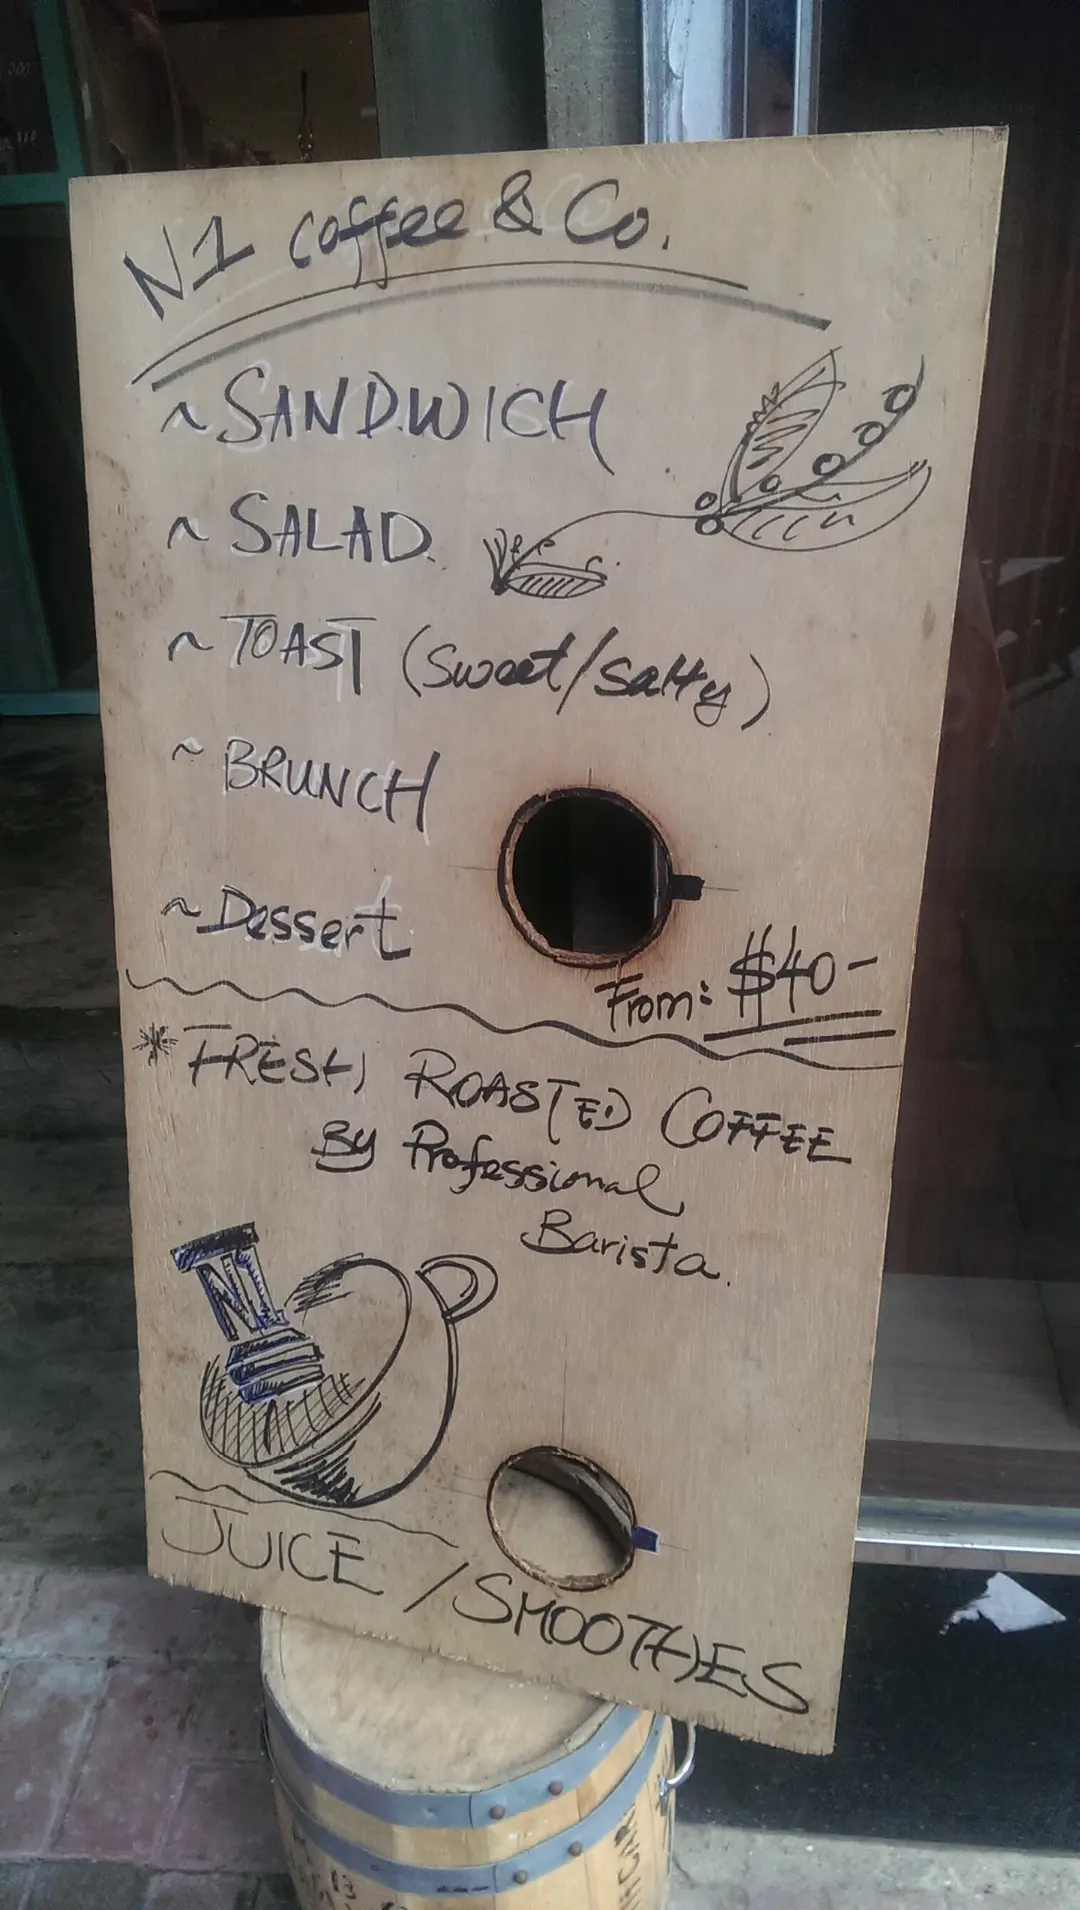 N1 coffee & Co.
~ SANDWICH
~ SALAD
~ TOAST (sweet/salty)
~ BRUNCH
~ Dessert
From: $40-
* FRESH ROASTED COFFEE
By Professional
Barista.
N1
JUICE / SMOOTHIES